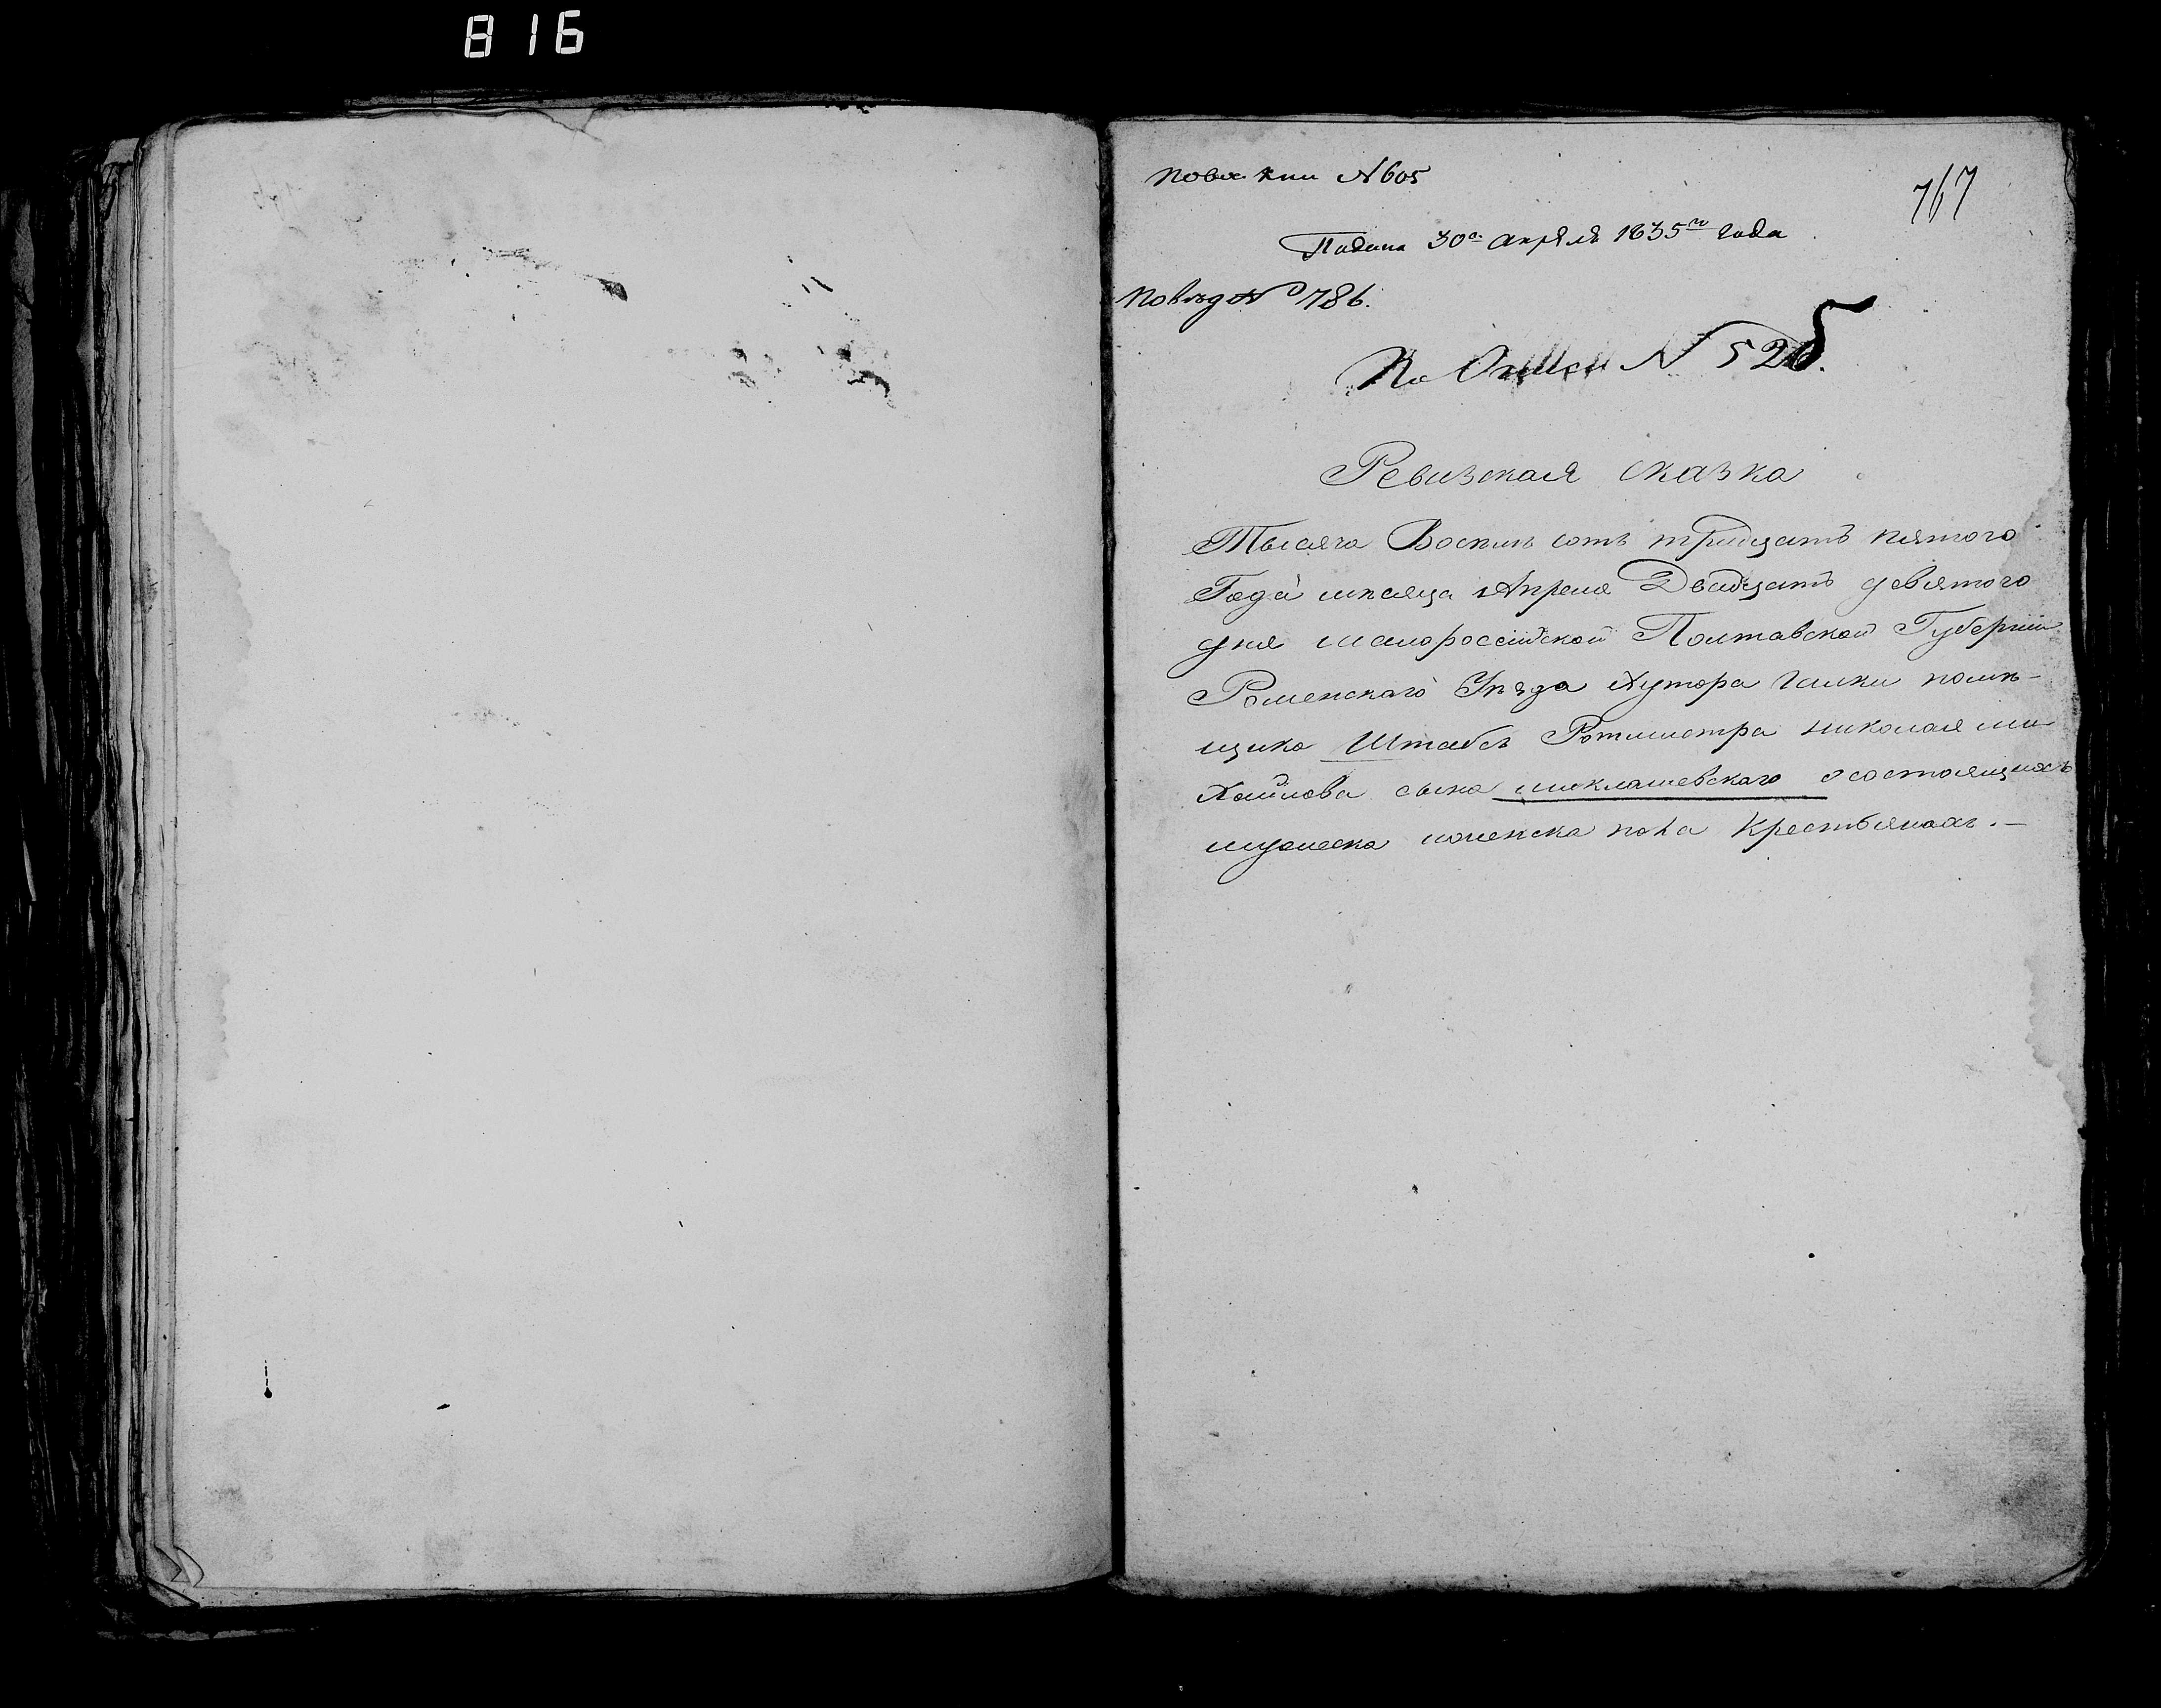 816
по книг N 605
767
Подана 30го апреля 1835го года
По вѣд N 786.
По Описи N 526.
Ревизская сказка
Тысяча Восемь сотъ тридцать пятого
Года мѣсяца Апреля Двадцать девятого
дня малороссійской Полтавской Губерніи
Роменскаго Уѣзда Хутора Галки помѣ-
щика Штабсъ Ротмистра николая ми-
хайлова сына миклашевскаго о состоящихъ
мужеска и женска пола Крестьянахъ.—